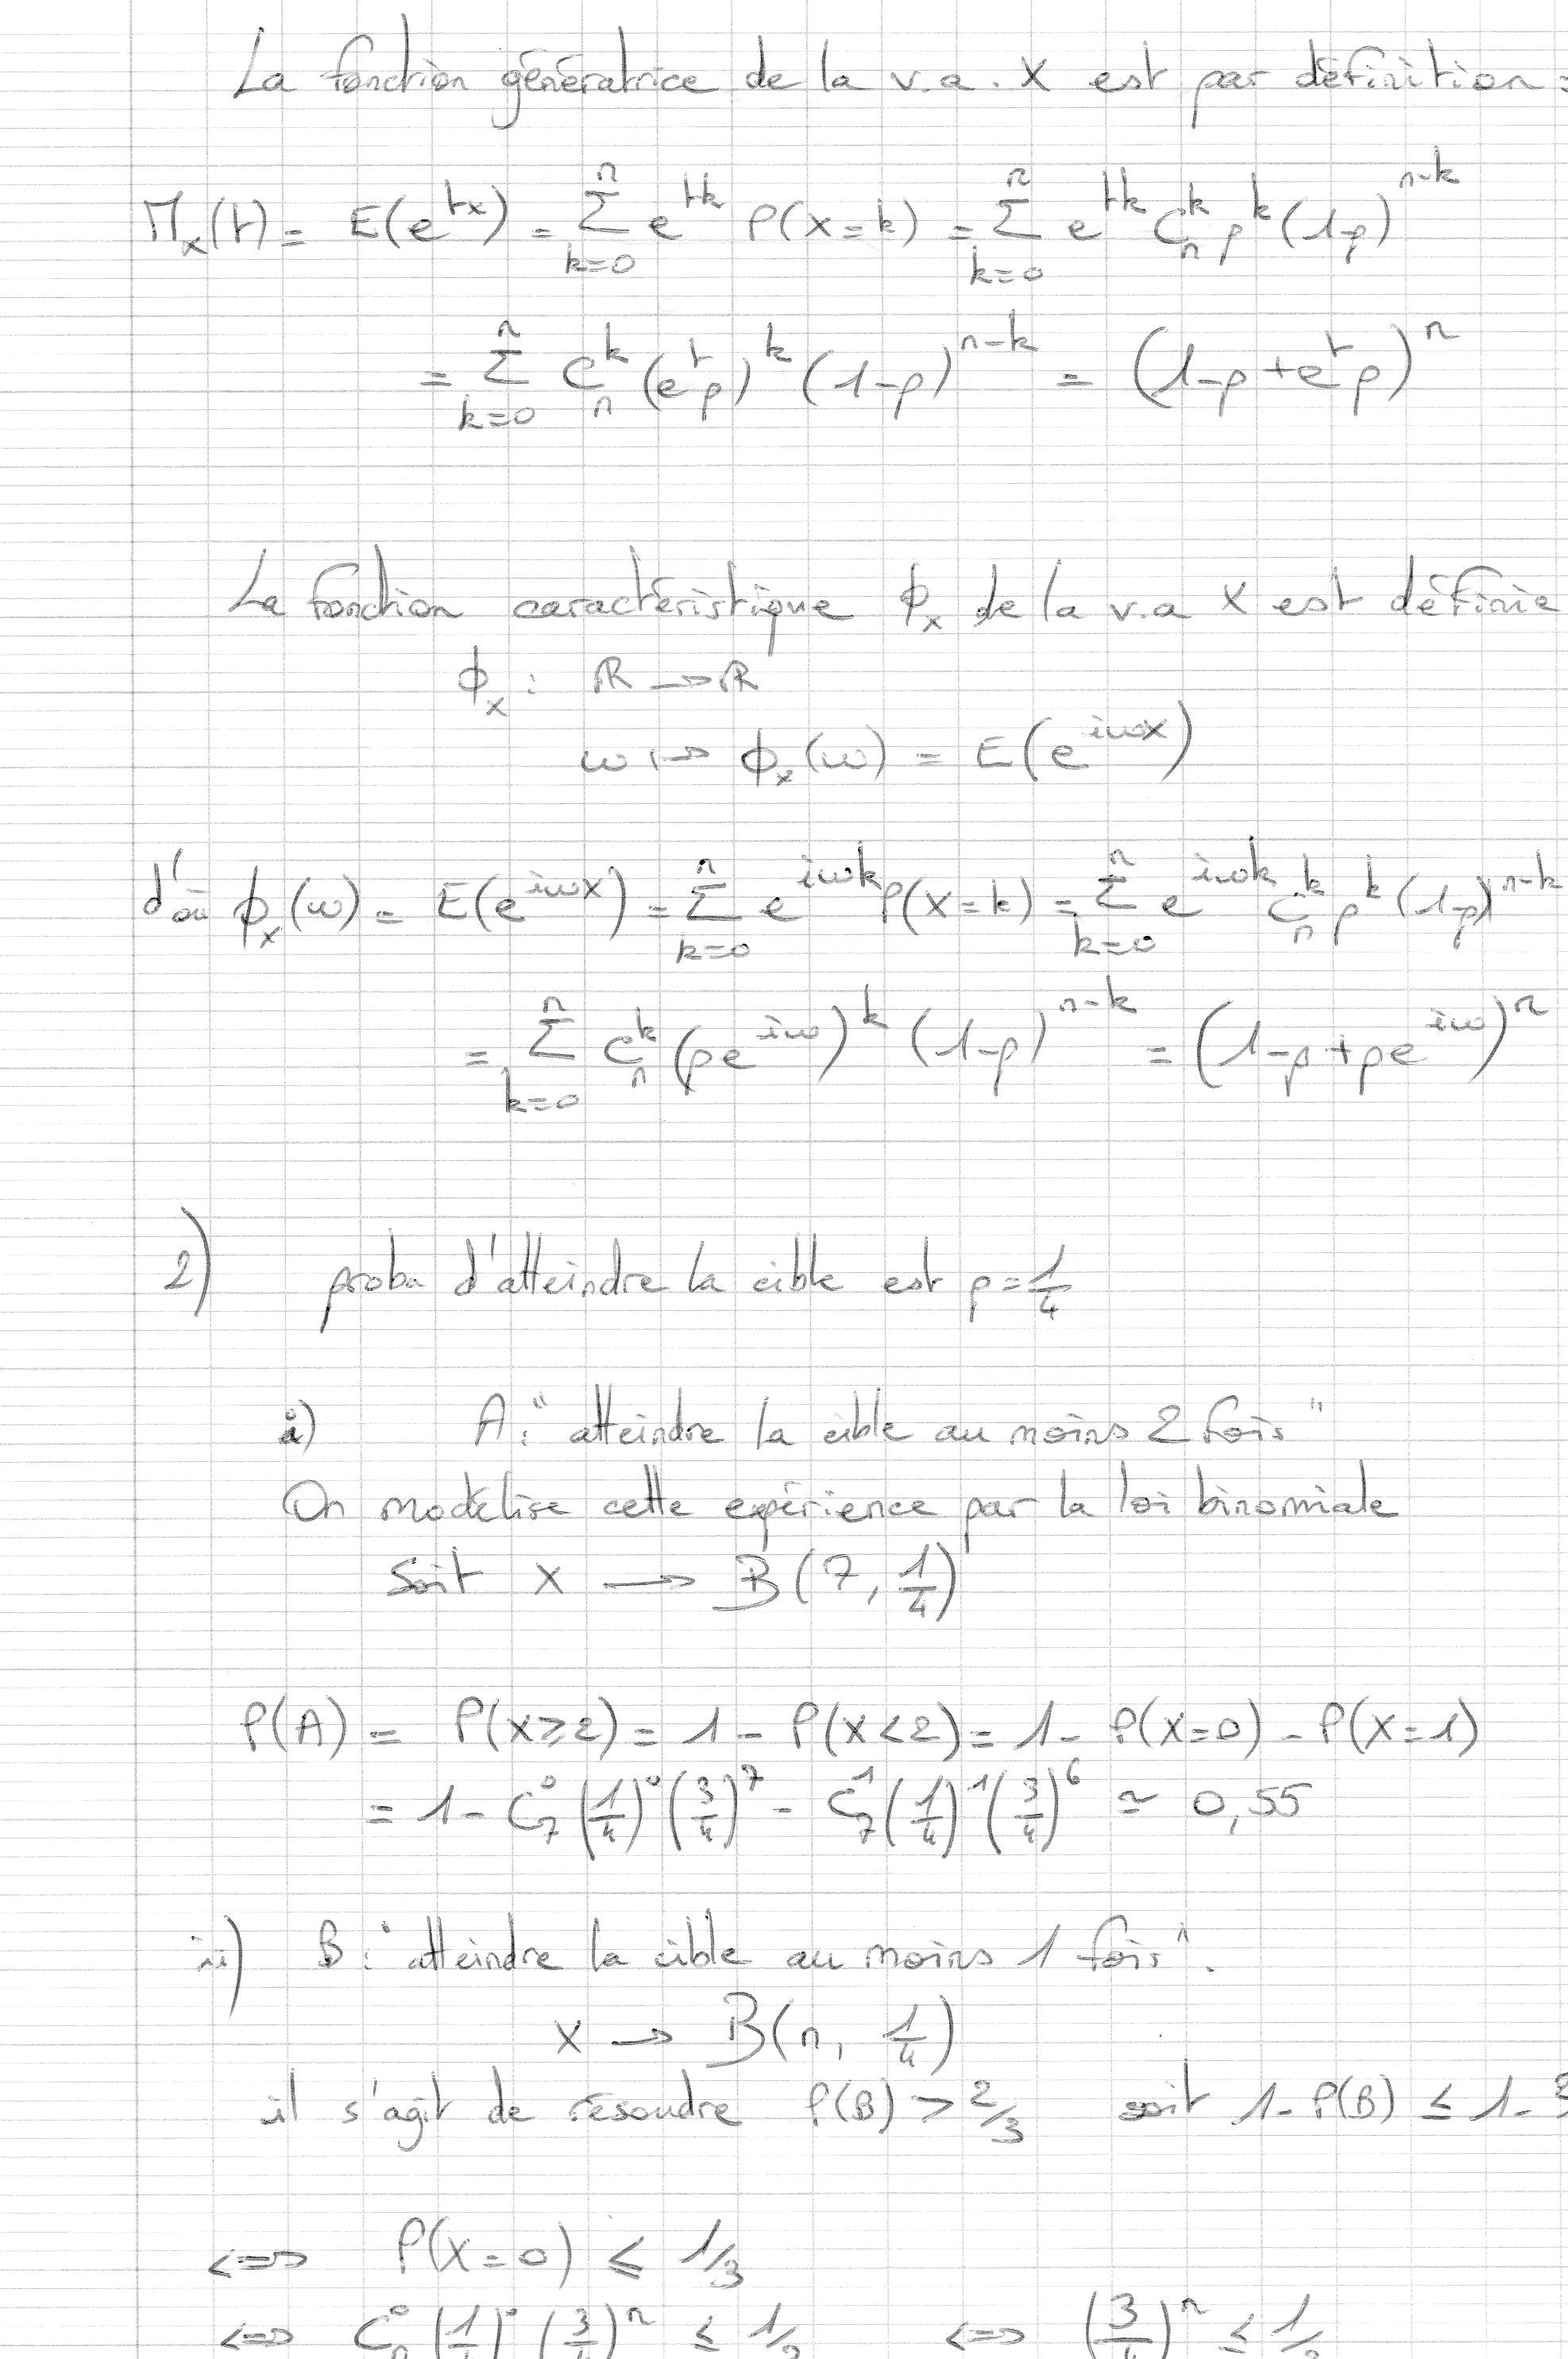 La fonction génératrice de la v.a. X est par définition :
M_x(t) = E(e^{tx}) = Σ_{k=0}^{n} e^{tk} P(X=k) = Σ_{k=0}^{n} e^{tk} C_n^k p^k (1-p)^{n-k}
= Σ_{k=0}^{n} C_n^k (e^t p)^k (1-p)^{n-k} = (1-p+e^t p)^n
La fonction caractéristique ϕ_x de la v.a X est définie
ϕ_x : ℝ → ℝ
ω ↦ ϕ_x(ω) = E(e^{iωX})
d'où ϕ_x(ω) = E(e^{iωX}) = Σ_{k=0}^{n} e^{iωk} P(X=k) = Σ_{k=0}^{n} e^{iωk} C_n^k p^k (1-p)^{n-k}
= Σ_{k=0}^{n} C_n^k (pe^{iω})^k (1-p)^{n-k} = (1-p+pe^{iω})^n
2) proba d'atteindre la cible est p = 1/4
i) A : "atteindre la cible au moins 2 fois"
On modélise cette expérience par la loi binomiale
Soit X → B(7, 1/4)
P(A) = P(X≥2) = 1 - P(X<2) = 1 - P(X=0) - P(X=1)
= 1 - C_7^0 (1/4)^0 (3/4)^7 - C_7^1 (1/4)^1 (3/4)^6 ≃ 0,55
ii) B : "atteindre la cible au moins 1 fois".
X → B(n, 1/4)
il s'agit de résoudre P(B) > 2/3 soit 1 - P(B) ≤ 1 -
⟺ P(X=0) ≤ 1/3
⟺ C_n^0 (1/4)^0 (3/4)^n ≤ 1/3 ⟺ (3/4)^n ≤ 1/3